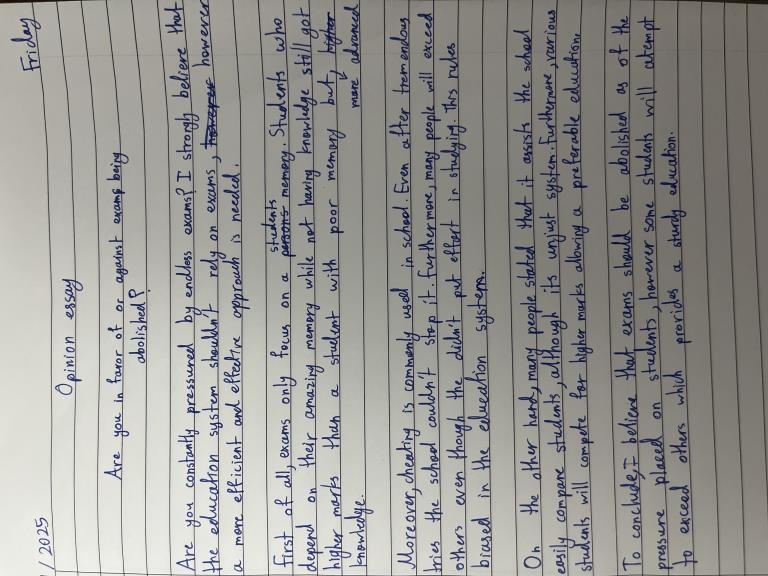 / 2025 Friday
Opinion essay
Are you in favor of or against exams being
abolished?
Are you constantly pressured by endless exams? I strongly believe that
the education system shouldn't rely on exams, however however
a more efficient and effective approach is needed.
students
First of all, exams only focus on a persons memory. Students who
depend on their amazing memory while not having knowledge still got
higher marks than a student with poor memory but, higher
more advanced
knowledge.
Moreover, cheating is commonly used in school. Even after tremendous
tries the school couldn't stop it. Furthermore, many people will exceed
others even though the didn't put effort in studying. This rules
biased in the education system.
On the other hand, many people stated that it assists the school
easily compare students, although its unjust system. Furthermore, various
students will compete for higher marks allowing a preferable education.
To conclude, I believe that exams should be abolished as of the
pressure placed on students, however some students will atempt
to exceed others which provides a sturdy education.